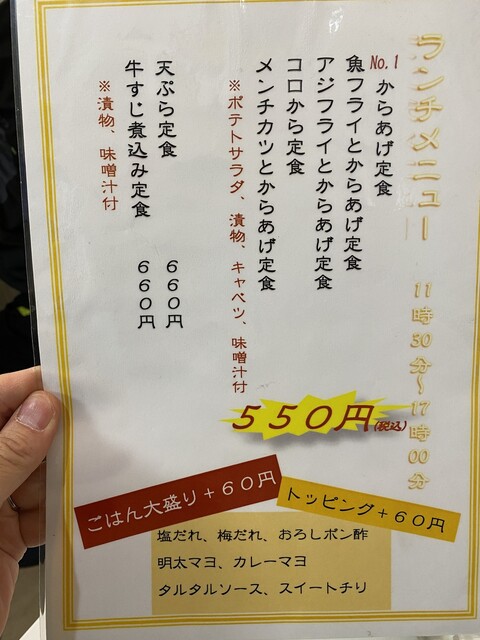 ランチメニュー 11時30分～17時00分
No.1 からあげ定食
魚フライとからあげ定食
アジフライとからあげ定食
コロから定食
メンチカツとからあげ定食
※ポテトサラダ、漬物、キャベツ、味噌汁付
550円(税込)
天ぷら定食 660円
牛すじ煮込み定食 660円
※漬物、味噌汁付
ごはん大盛り+60円
トッピング+60円
塩だれ、梅だれ、おろしポン酢
明太マヨ、カレーマヨ
タルタルソース、スイートチリ